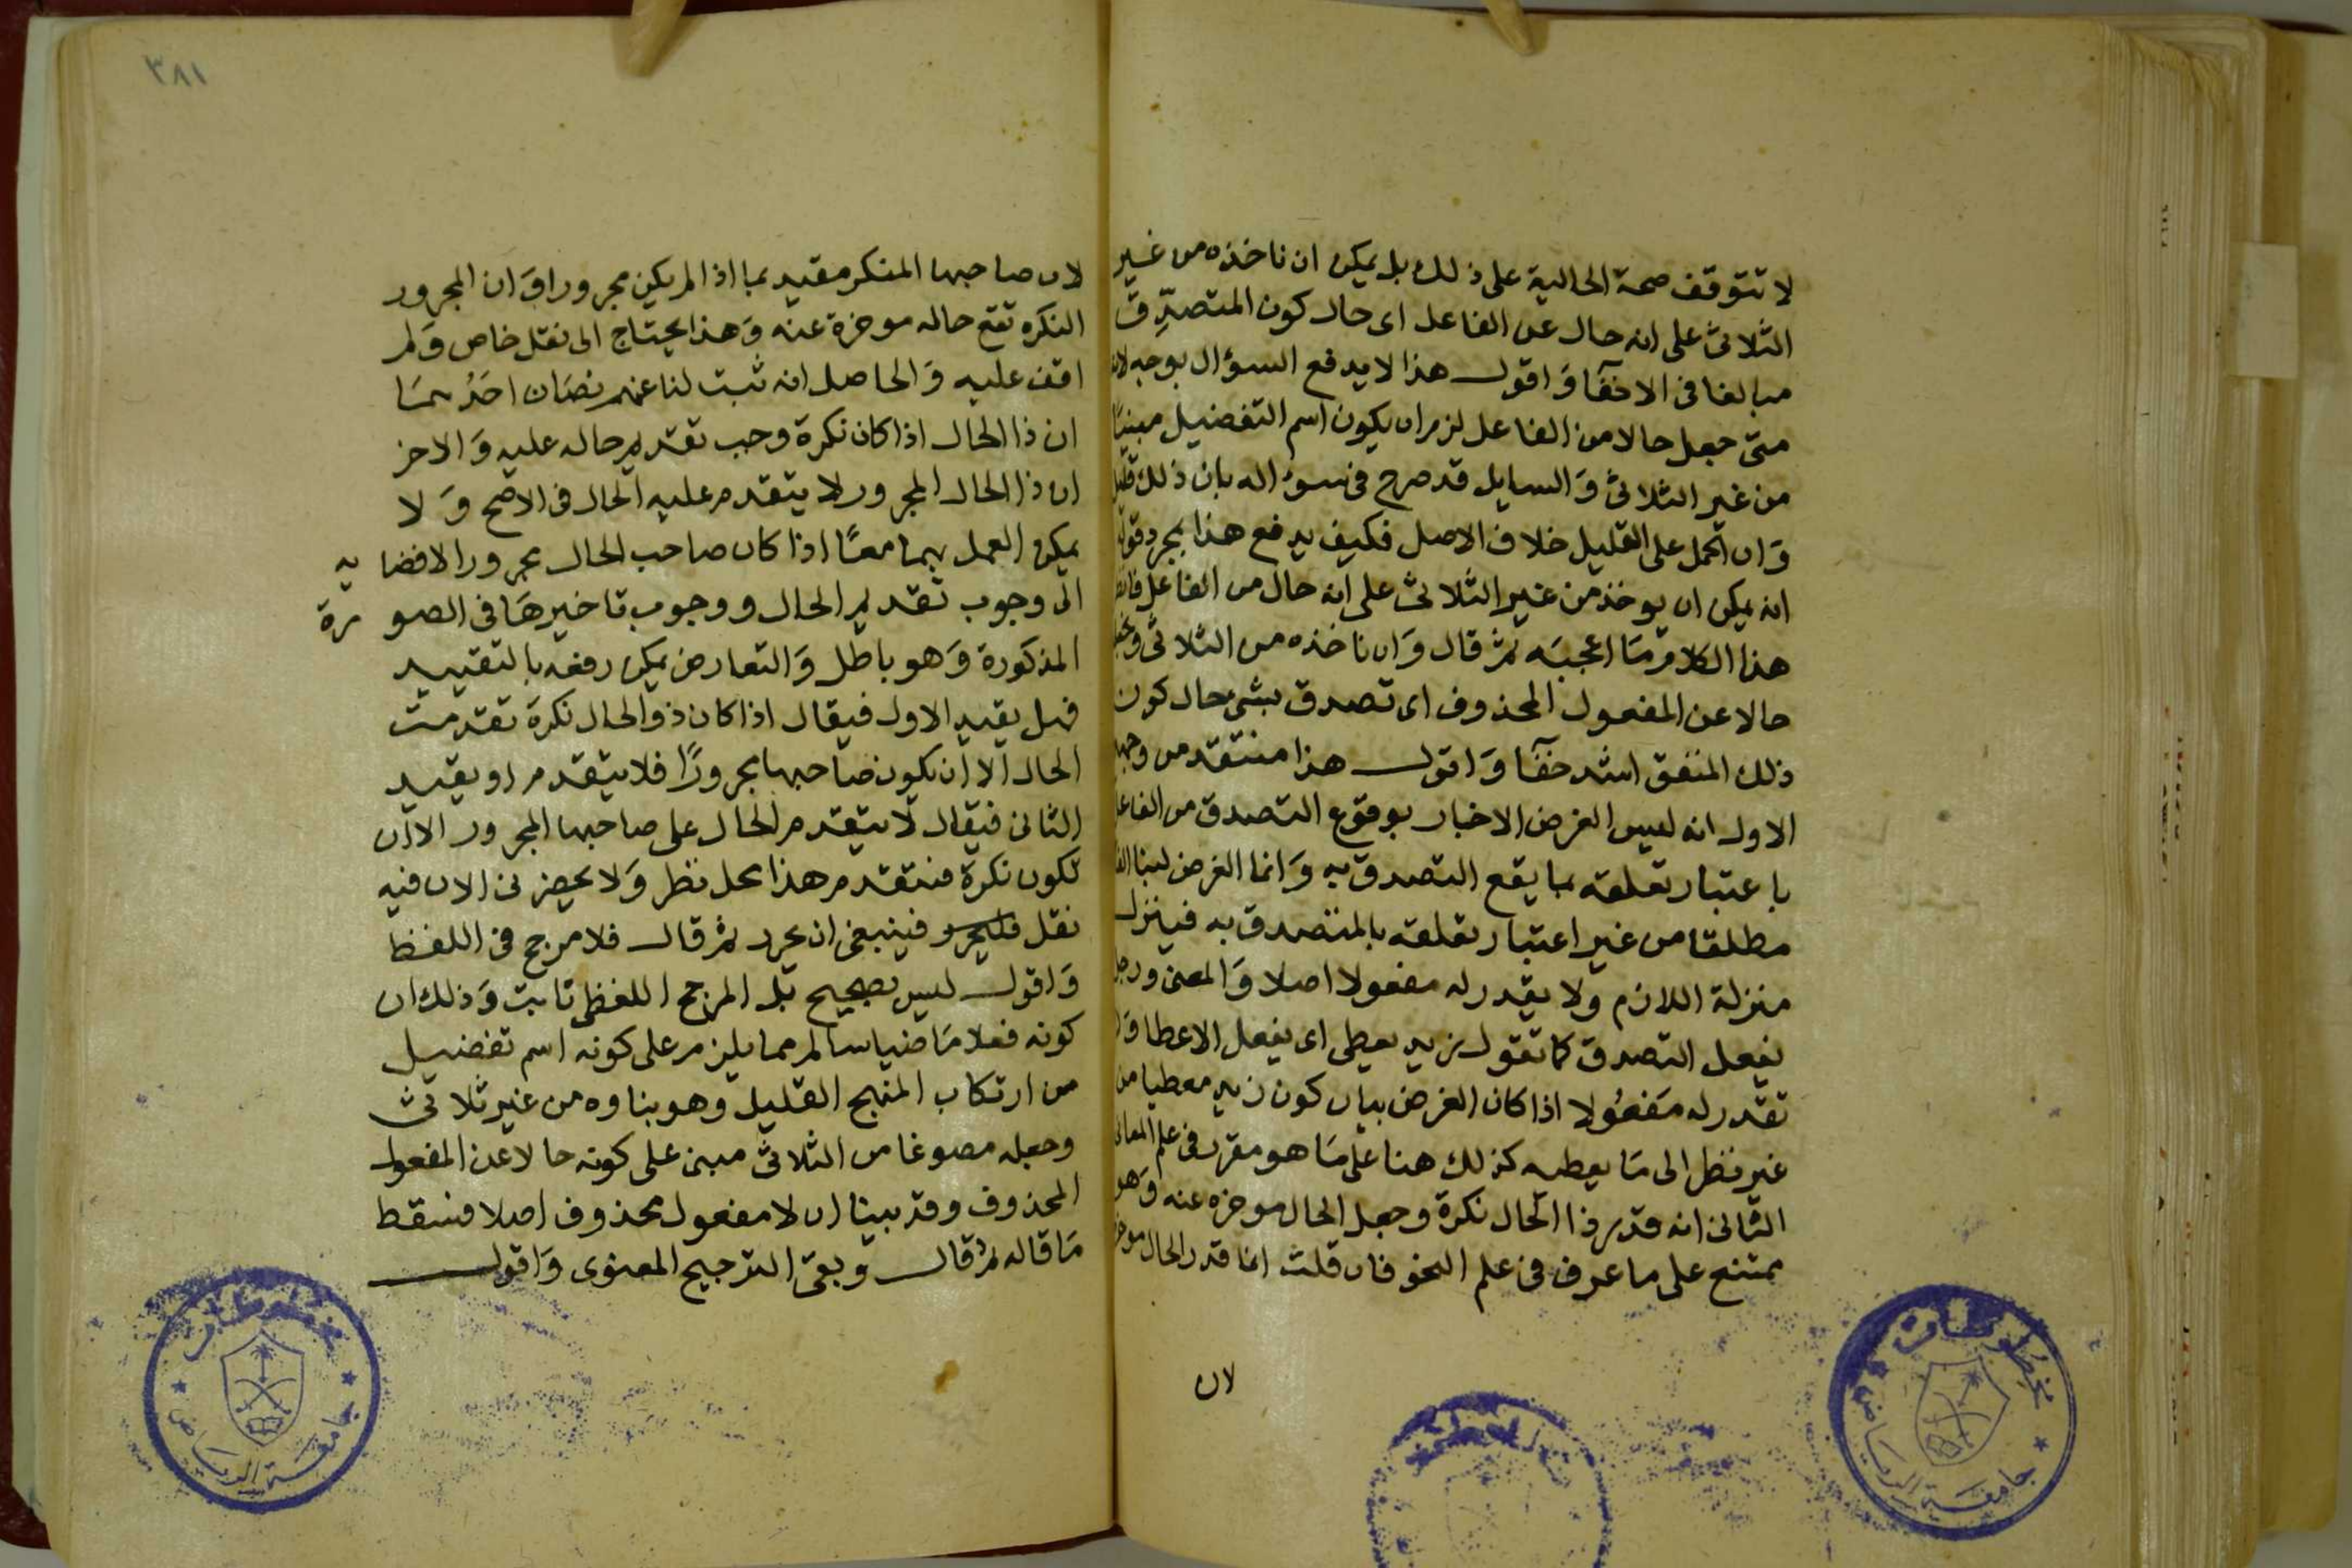 لا تتوقف صحة الحالية على ذلك بل يمكن ان ناخذه من غير
الثلاثى على انه حال عن الفاعل اى حال كون المتصدّق
مبالغا فى الاخفآ وَاقول هذا لا يدفع السؤال بوجه لانه
متى جعل حالا من الفاعل لزم ان يكون اسم التفضيل مبنيًا
من غير الثلاثى وَالسايل قد صرح فى سوٴاله بان ذلك قليل
وَان الحمل على القليل خلاف الاصل فكيف يدفع هذا بمجرد قوله
انه يمكن ان يوخذ من غير الثلاثى على انه حال من الفاعل
هذا الكلام مَا اعجبَه ثم قال وَان ناخذه من الثلاثى
حالا عن المفعول المحذوف اى تصدق بشى حال كون
ذلك المنفق اشد خفآ وَاقول هذا منتقد من وجهين
الاول انه ليس الغرض الاخبار بوقوع التصدق من الفاعل
باعتبار تعلقه بما يقع التصدق به وَانما الغرض
مطلقا من غير اعتبار تعلقه بالمتصدق به فينزل
منزلة اللازم ولا يقدر له مفعولا اصلا وَالمعنى ورجل
يفعل التصدق كما تقول زيد يعطى اى يفعل الاعطا وَلا
تقدر له مَفعُولا اذا كان الغرض بيان كون زيد معطيا من
غير نظر الى مَا يعطيه كذلك هنا على مَا هو مقرر فى علم المعانى
الثانى انه قدر ذا الحال نكرة وجعل الحال موخره عنه وَهو
ممتنع على ما عرف فى علم النحو فان قلت انما قدر الحال
لان
٣٨١
لان صاحبها المنكر مقيد بما اذا لم يكن مجرورا وَان المجرور
النكره تقع حاله موخرة عنه وَهذا يحتاج الى نقل خاص وَلم
اقف عليه وَالحاصل انه ثبت لنا عنهم نصَان احَدُهمَا
ان ذا الحال اذا كان نكرة وجب تقديم حاله عليه وَالاخر
ان ذا الحال المجرور لا يتقدم عليه الحال فى الاصح وَلا
يمكن العمل بهما معًا اذا كان صاحب الحال مجرورا لافضايه
الى وجوب تقديم الحال ووجوب تاخيرهَا فى الصورة
المذكورة وَهو باطل وَالتعارض يمكن رفعه بالتقييد
فهل يقيد الاول فيقال اذا كان ذو الحال نكرة تقدمت
الحال الا ان يكون صاحبها مجرورًا فلا يتقدم او يقيد
الثانى فيقال لا يتقدم الحال على صاحبها المجرور الا ان
تكون نكرة فتتقدم هذا محل نظر وَلا يحضرنى الان فيه
نقل فليحرر فينبغى ان يحرر ثم قال فلا مرجح فى اللفظ
وَاقول ليس بصحيح بل المرجح اللفظى ثابت وَذلك ان
كونه فعلا مَاضيا سالم مما يلزم على كونه اسم تفضيل
من ارتكاب المنهج القليل وهو بناوه من غير ثلاثى
وجعله مصوغا من الثلاثى مبنى على كونه حالا عن المفعول
المحذوف وقد بينا ان لا مفعول محذوف اصلا فسقط
مَا قاله ثم قال وبقى الترجيح المعنوى وَاقول
مخطوطات
جامعة الرياض
مخطوطات
جامعة الرياض